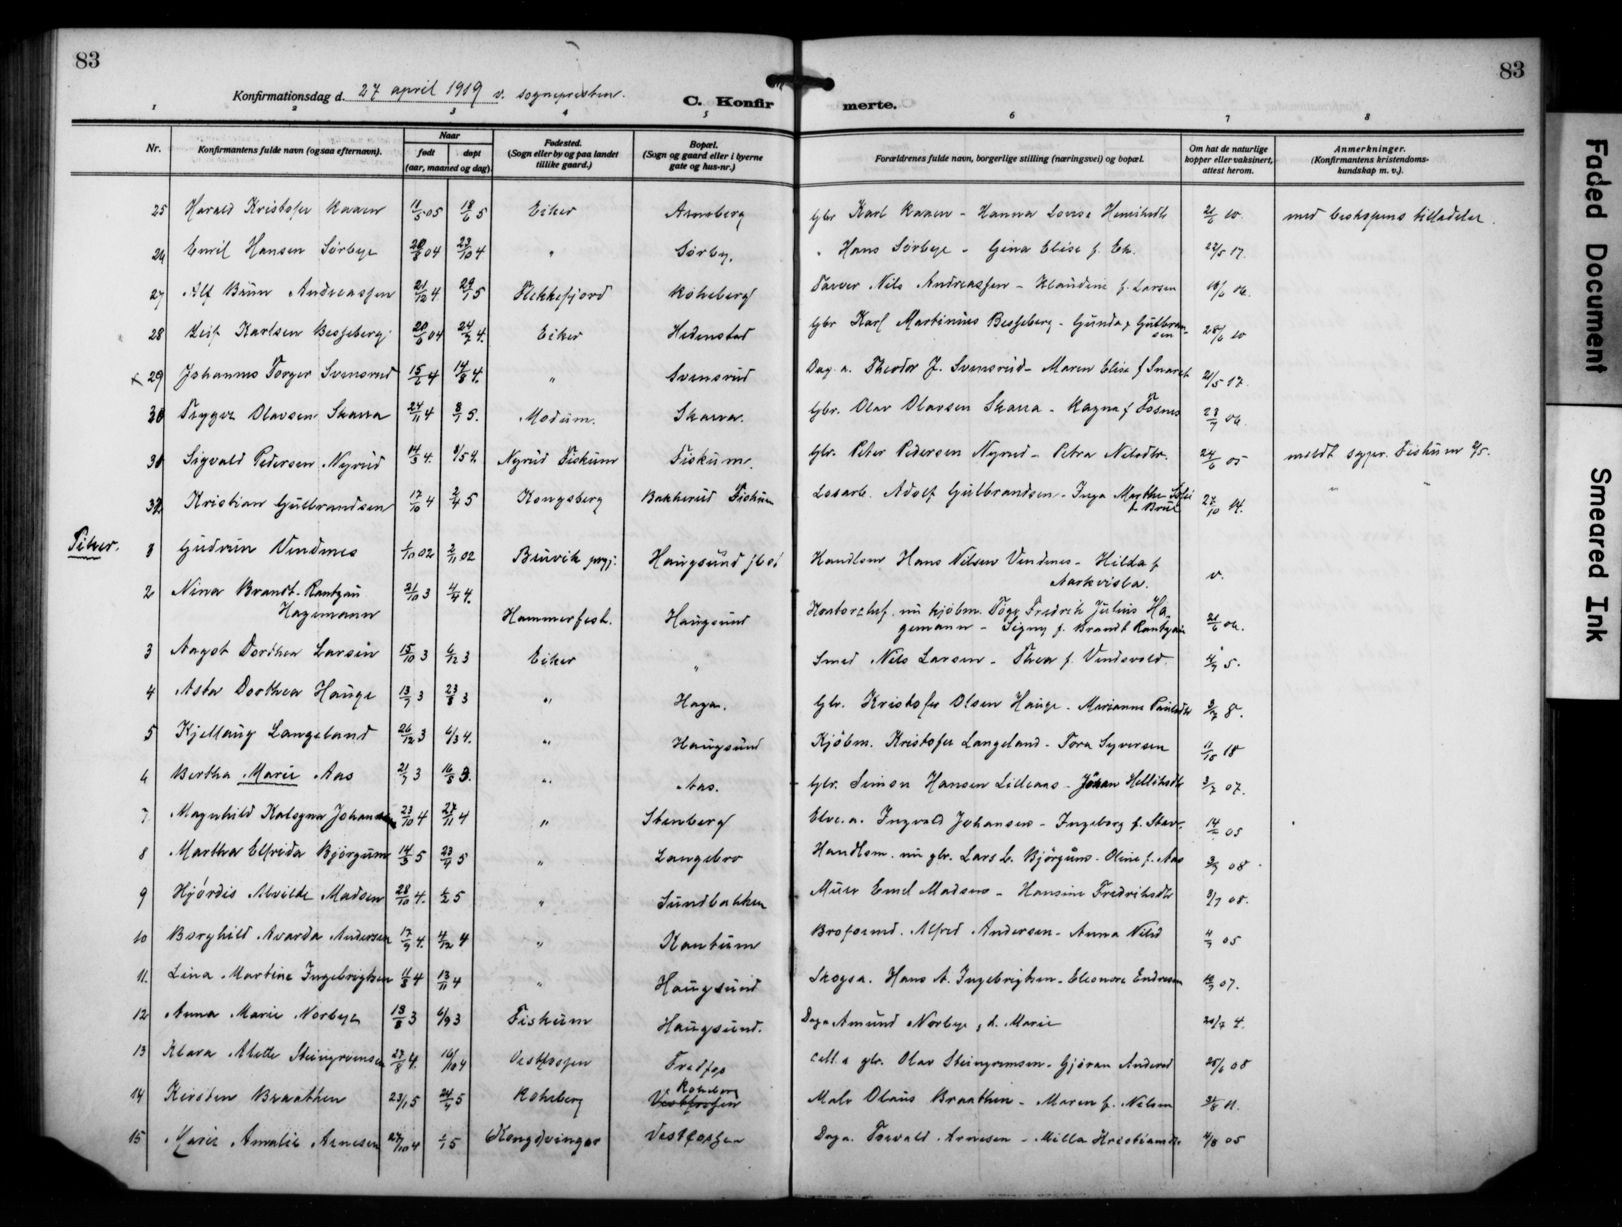 83
83
Konfirmationsdag d. 27 april 1919 v. sognepresten.
C. Konfirmerte.
1 2 3 4 5 6 7 8
Nr. Konfirmantens fulde navn (ogsaa efternavn). Naar født døpt (aar, maaned og dag) Fødested. (Sogn eller by og paa landet tillike gaard.) Bopæl. (Sogn og gaard eller i byerne gate og hus-nr.) Forældrenes fulde navn, borgerlige stilling (næringsvei) og bopæl. Om hat de naturlige kopper eller vaksinert, attest herom. Anmerkninger. (Konfirmantens kristendomskundskap m. v.).
25 Harald Kristofer Kaaen 11/5 05 18/6 5 Eiker Arneberg Gbr Karl Kaaen - Hanna Lovise 21/6 10 med biskopens tilladelse.
26 Emil Hansen Sörbye 04 23/10 4 " Sörby. " Hans Sörbye - Gina Elise f. Ek. 22/5 17.
27 Alf Bünn Andreassen 21/12 4 29/1 5 Flekkefjord Kolneberg Farver Nils Andreassen - Klaudine f. Larsen 19/6 06.
28 Leif Karlsen Besseberg 20/6 04 24/7 4. Eiker Hedenstad Gbr Karl Martinius Besseberg - Gunda f. Gulbrandsen 28/6 10
x 29 Johannes Torger Svensrud 15/6 4 14/8 4. " Svensrud Dag. a. Theodor J. Svensrud - Maren Elise f 21/5 17.
30 Trygve Olavsen Skarra 24/11 4 8/1 5. Modum. Skarra. Gbr. Olav Olavsen Skarra - Ragna f Fosnes 23/7 06.
31 Sigvald Pedersen Nyrud 14/3 4. 1/5 4. Nyrud Fiskum Fiskum. Gbr. Peter Pedersen Nyrud - Petra Nilsdtr. 24/6 05 meldt sgpr. Fiskum 2/5.
32. Kristian Gulbrandsen 17/10 4 2/4 5 Kongsberg Bakkerud Fiskum Losarb. Adolf Gulbrandsen - Inga Marthe Sofie f. Brul 27/10 14. " "
Piker. 1 Gudrun Vindnes 02 2/11 02 Bruvik prgj. Haugsund Handlsm Hans Nilsen Vindenes - Hilda f. v.
2 Nina Brandt-Rantzau Hagemann 21/10 3 4/4 4. Hammerfest. Haugsund Kontorchef. nu kjöbm. Fredrik Julius Hagemann - Signy f. Brandt Rantzau 21/6 06.
3 Aagot Dorthea Larsen 15/10 3 6/12 3 Eiker " Smed Nils Larsen - Thea f. Vindsvold. 4/9 5.
4 Asta Dorthea Hauge 13/7 3 23/8 3 " Haga. Gbr. Kristofer Olsen Hauge - Marianne Paulsdtr 3/7 8.
5 Kjellaug Langeland 26/12 3 6/3 4. " Haugsund Kjöbm. Kristofer Langeland - Tora Syversen 11/10 18
6 Bertha Marie Aas 21/7 3 16/8 3. " Aas. Gbr. Simon Hansen Lilleaas - Johan Hellikdtr 3/7 07.
7 Magnhild Kalogna Johansen 23/10 4 27/11 4 " Stenberg Elve.a. Ingvald Johansen - Ingeborg f. 14/ 05
8 Martha Elfrida Björgum 14/3 5 23/4 5 " Langebro Handlsm. nu gbr. Lars L. Björgum - Oline f. Aas 3/9 08.
9 Hjördis Alvilde Madsen 28/10 4. 6/2 5 " Sundbakken Murer Emil Madsen - Hansine Fredriksdtr 3/7 08.
10 Borghild Avarda Andersen 17/9 4. 4/12 4 " Kantum Broformd. Alfred Andersen - Anna Nilsd 4/7 05
11. Lina Martine Ingebrigtsen 4 13/11 4 " Haugsund Skogsa. Hans A. Ingebrigtsen - Eleonore Endresen 07.
12 Anna Marie Norbye 13/8 3 6/9 3 Fiskum Haugsund. Daga Amund Norbye, h. Marie 21/7 4.
13 Klara Alette Steingrimsen 27/8 4. 16/10 4 Vestfossen Fredfos Cell. a gbr. Olav Steingrimsen - Gjöran Andersd 25/6 08
14 Kirsten Braathen 23/1 5 24/4 5 Kolneberg Vestfossen Kolneberg Malr Olaus Braathen - Maren f. Nilsen 31/8 11.
15 Marie Amalie Arnesen 27/10 4 1/1 5 Kongsvinger Vestfossen Daga. Torvald Arnesen - Milla Kristiansdtr 4/8 05
Faded Document
Smeared Ink